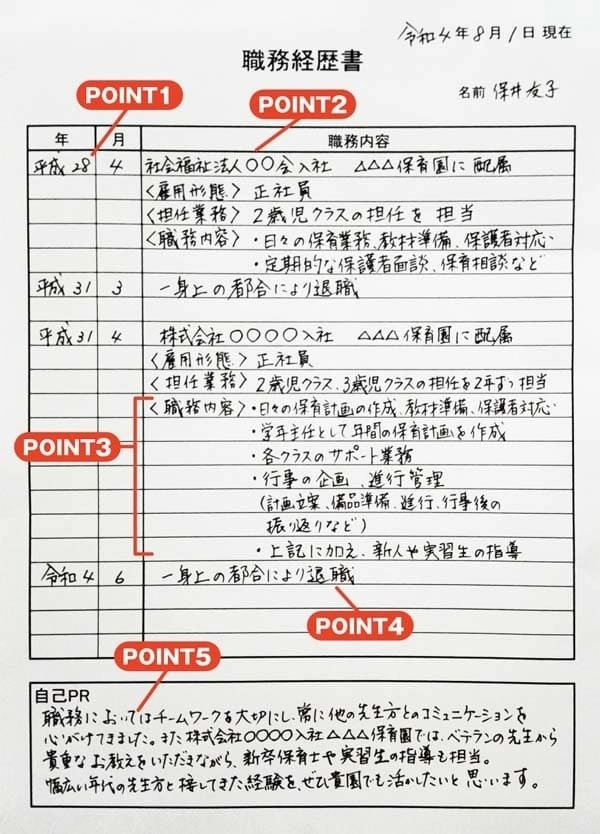 令和4年8月1日 現在
職務経歴書
名前 保井友子
POINT1
POINT2
年 月 職務内容
平成28 4 社会福祉法人○○会入社 △△△保育園に配属
〈雇用形態〉正社員
〈担任業務〉2歳児クラスの担任を担当
〈職務内容〉・日々の保育業務、教材準備、保護者対応
・定期的な保護者面談、保育相談など
平成31 3 一身上の都合により退職
平成31 4 株式会社○○○○入社 △△△保育園に配属
〈雇用形態〉正社員
〈担任業務〉2歳児クラス、3歳児クラスの担任を2年ずつ担当
〈職務内容〉・日々の保育計画の作成、教材準備、保護者対応
POINT3
・学年主任として年間の保育計画を作成
・各クラスのサポート業務
・行事の企画、進行管理
(計画立案、備品準備、進行、行事後の
振り返りなど)
・上記に加え、新人や実習生の指導
令和4 6 一身上の都合により退職
POINT4
POINT5
自己PR
職務においてはチームワークを大切にし、常に他の先生方とのコミュニケーションを
心がけてきました。また株式会社○○○○入社△△△保育園では、ベテランの先生から
貴重なお教えをいただきながら、新卒保育士や実習生の指導も担当。
幅広い年代の先生方と接してきた経験を、ぜひ貴園でも活かしたいと思います。